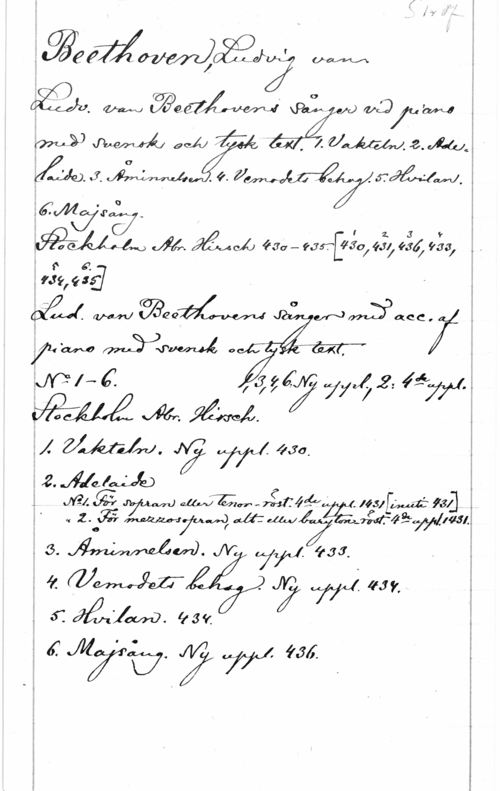 Beethoven, Ludvig van
Ludv. van Beethovens Sånger vid piano
med svensk och tysk text. 1. Vakteln. 2. Ade-
laide. 3. Åminnelsen. 4. Vemodets behag. 5. Hvilan.
6. Majsång.
Stockholm Abr. Hirsch 430-435. [1 430, 2 431, 3 436, 4 433,
5 434, 6 435]
Lud. van Beethovens Sånger med acc. af
piano med svensk och tysk text.
No 1-6. 1,3,4,6 Ny uppl., 2: 4de uppl.
Stockholm Abr. Hirsch.
1. Vakteln. Ny uppl. 430.
2. Adelaide
No 1. För sopran eller Tenor-röst. 4de uppl. 1431 [inuti 431]
" 2. För mezzosopran, alt- eller barytonröst. 4de uppl. 1431.
3. Åminnelsen. Ny uppl. 433.
4. Vemodets behag. Ny uppl. 434.
5. Hvilan. 434.
6. Majsång. Ny uppl. 436.